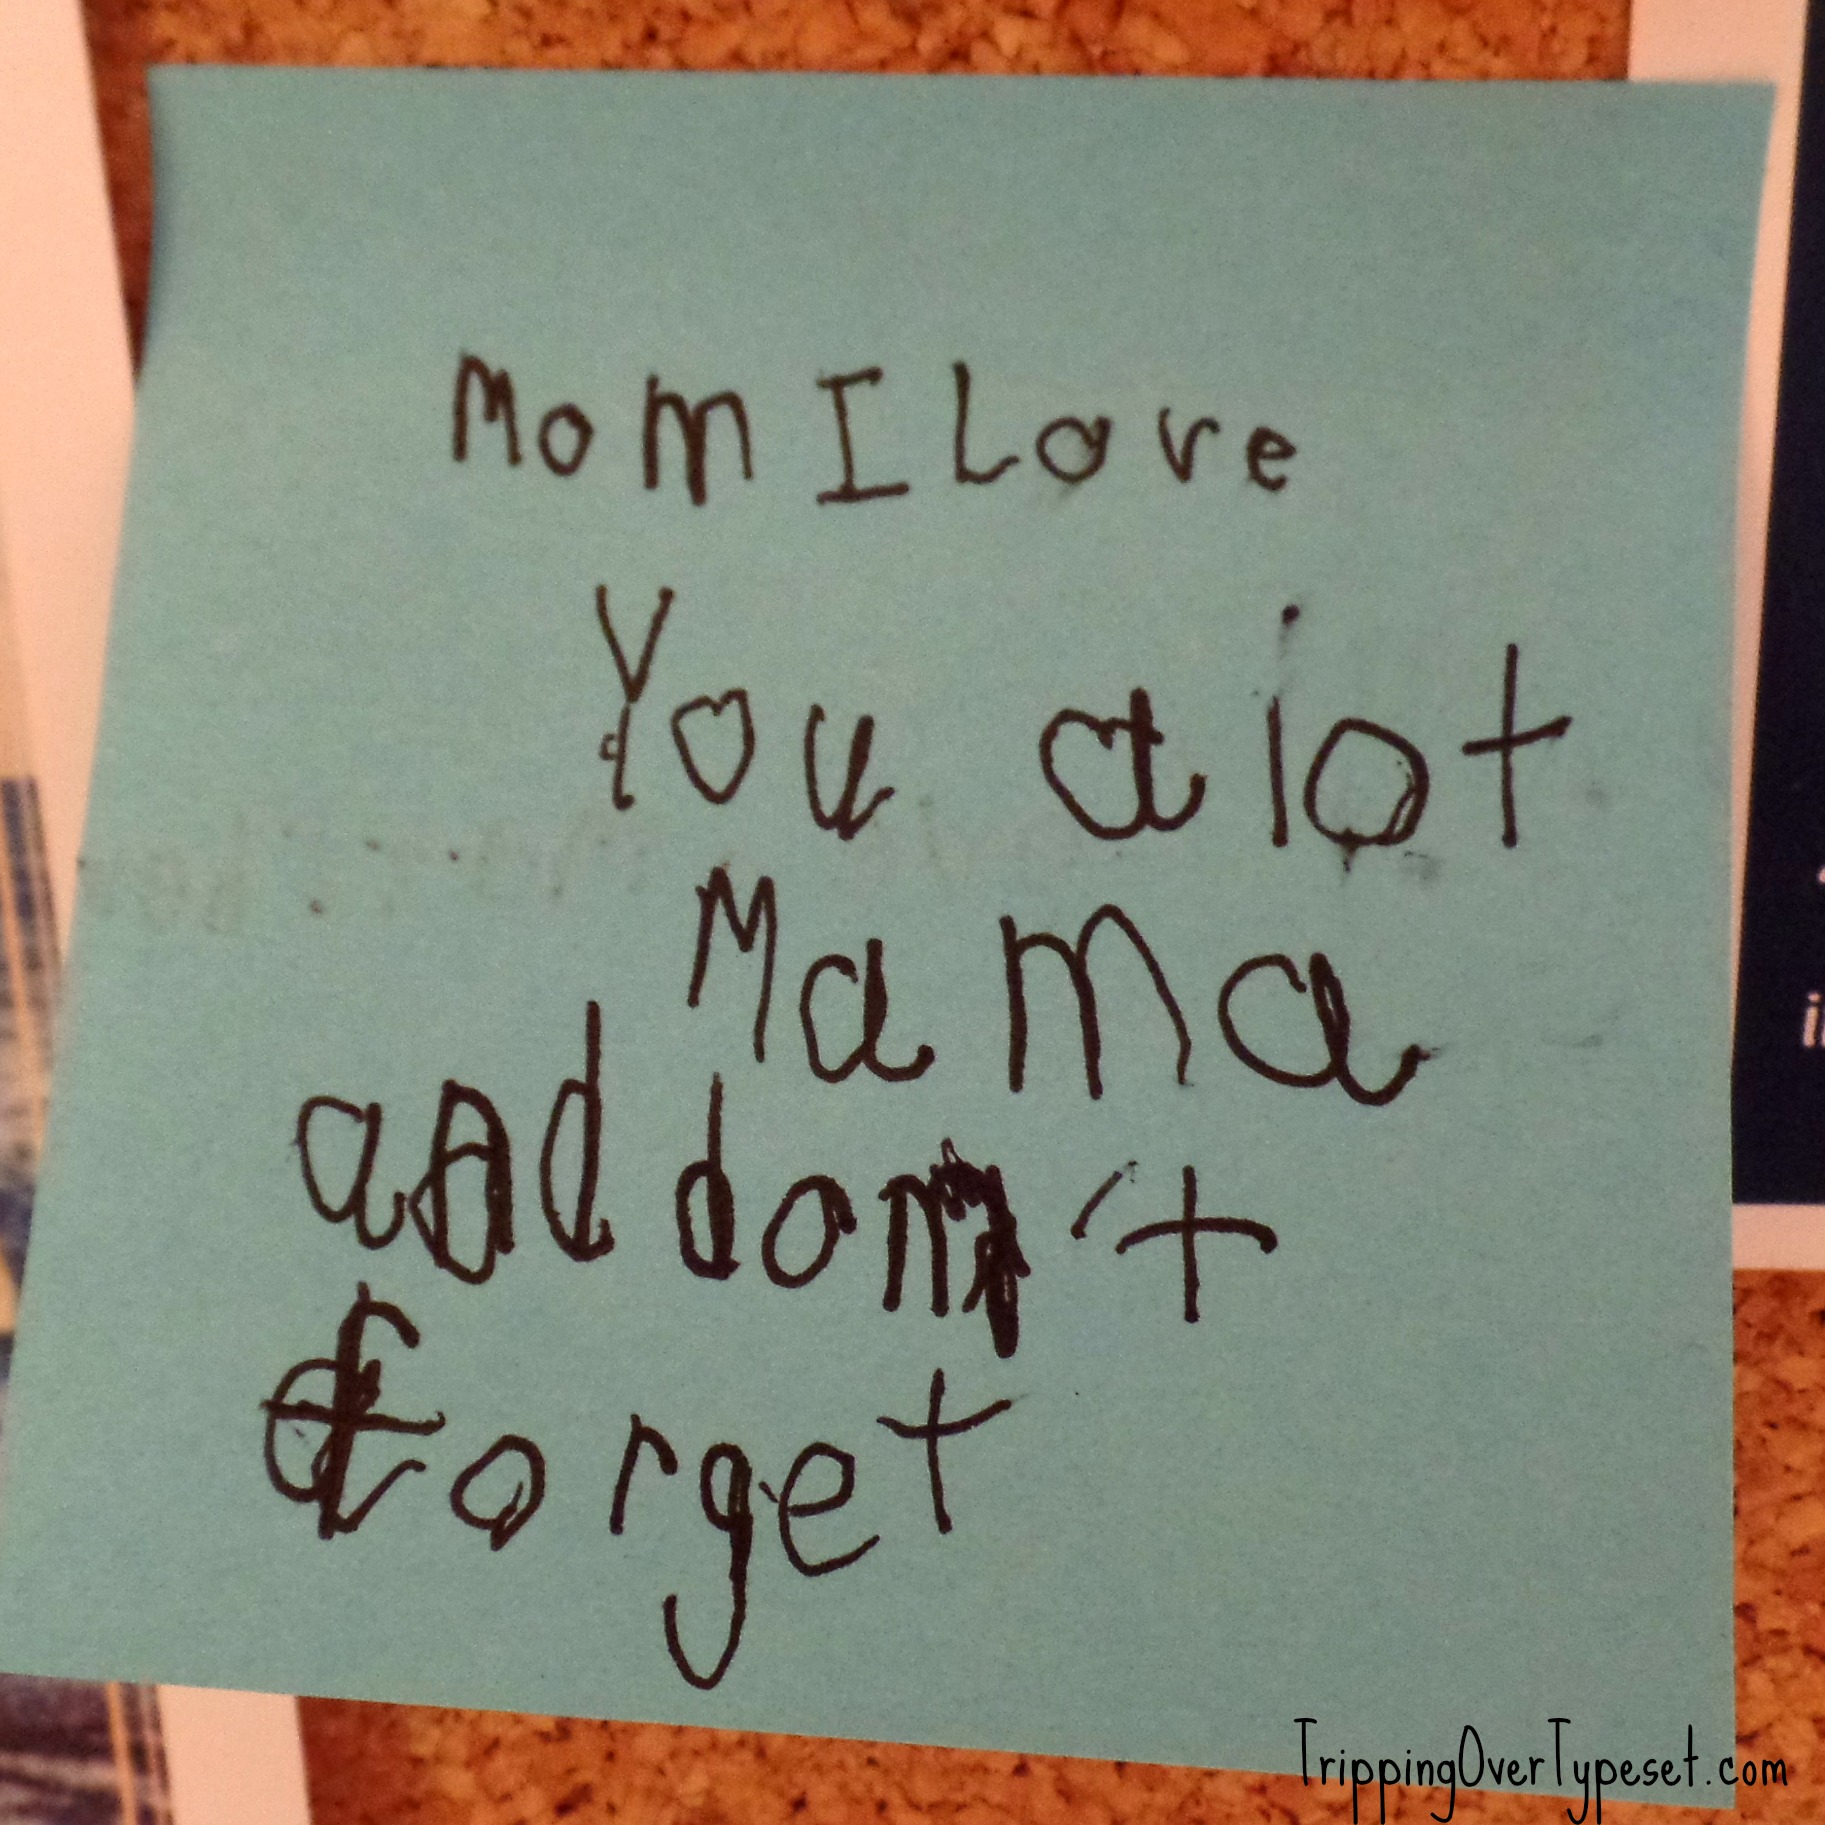 Mom I Love
You alot
Mama
and don't
forget
TrippingOverTypeset.com